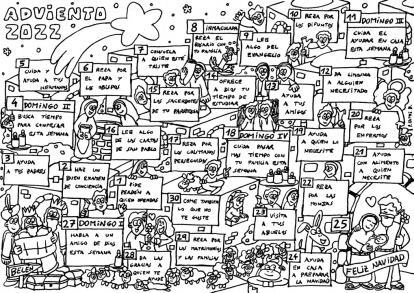 ADVIENTO
2022
27 DOMINGO I
HABLA A UN
AMIGO DE DIOS
ESTA SEMANA
28 DA LAS
GRACIAS A
QUIEN TE
AYUDE
29 REZA POR
LOS MATRIMONIOS
Y LAS FAMILIAS
30 COME TAMBIÉN
LO QUE NO
TE GUSTE
1
PIDE
PERDÓN A
QUIEN OFENDAS
2 HAZ UN
BUEN EXAMEN
DE CONCIENCIA
3 AYUDA
A TUS PADRES
4 DOMINGO II
BUSCA TIEMPO
PARA CONFESAR
ESTA SEMANA
5
CUIDA Y
AYUDA A TUS
HERMANOS
6 REZA POR
EL PAPA Y
LOS OBISPOS
7 CONSUELA
A QUIEN ESTÉ
TRISTE
8 INMACULADA
REZA EL
ROSARIO CON
TU FAMILIA
9 LEE
ALGO DEL
EVANGELIO
10 REZA POR
LOS DIFUNTOS
11 DOMINGO III
CUIDA EL
AYUDAR EN CASA
ESTA SEMANA
12 DA LIMOSNA
A ALGUIEN
NECESITADO
13
AYUDA
A TUS
AMIGOS
OFRECE
A DIOS TU
TIEMPO DE
ESTUDIAR
15 REZA POR
LOS SACERDOTES
DE TU PARROQUIA
16 LEE ALGO
DE LAS CARTAS
DE SAN PABLO
17
REZA POR
LOS CRISTIANOS
PERSEGUIDOS
18 DOMINGO IV
CUIDA PASAR
MÁS TIEMPO CON
TU FAMILIA ESTA
SEMANA
19
AYUDA A
QUIEN LO
NECESITE
20
REZA
POR LOS
ENFERMOS
21 AYUDA
CON ALIMENTO
A QUIEN
NECESITE
22
REZA
POR LAS
MONJAS
23 VISITA
A TUS
ABUELOS
24 AYUDA
EN CASA
A PREPARAR
LA NAVIDAD
25
FELIZ NAVIDAD
BELÉN